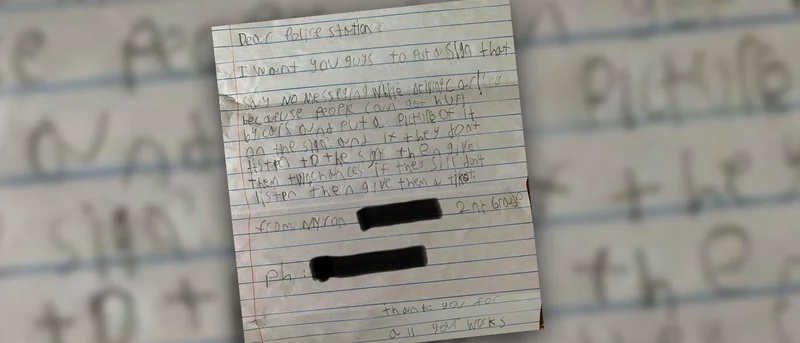 Dear Police station:
I want you guys to Put a sign that
say No messeging While driving car!
because people can get hurt
by cars and put a picture of it
on the sign. and if they dont
listen to the sign then give
them two chances if they still dont
listen then give them a ticket
from Myron 2nt Grade
Ph:
thank you for
all your works